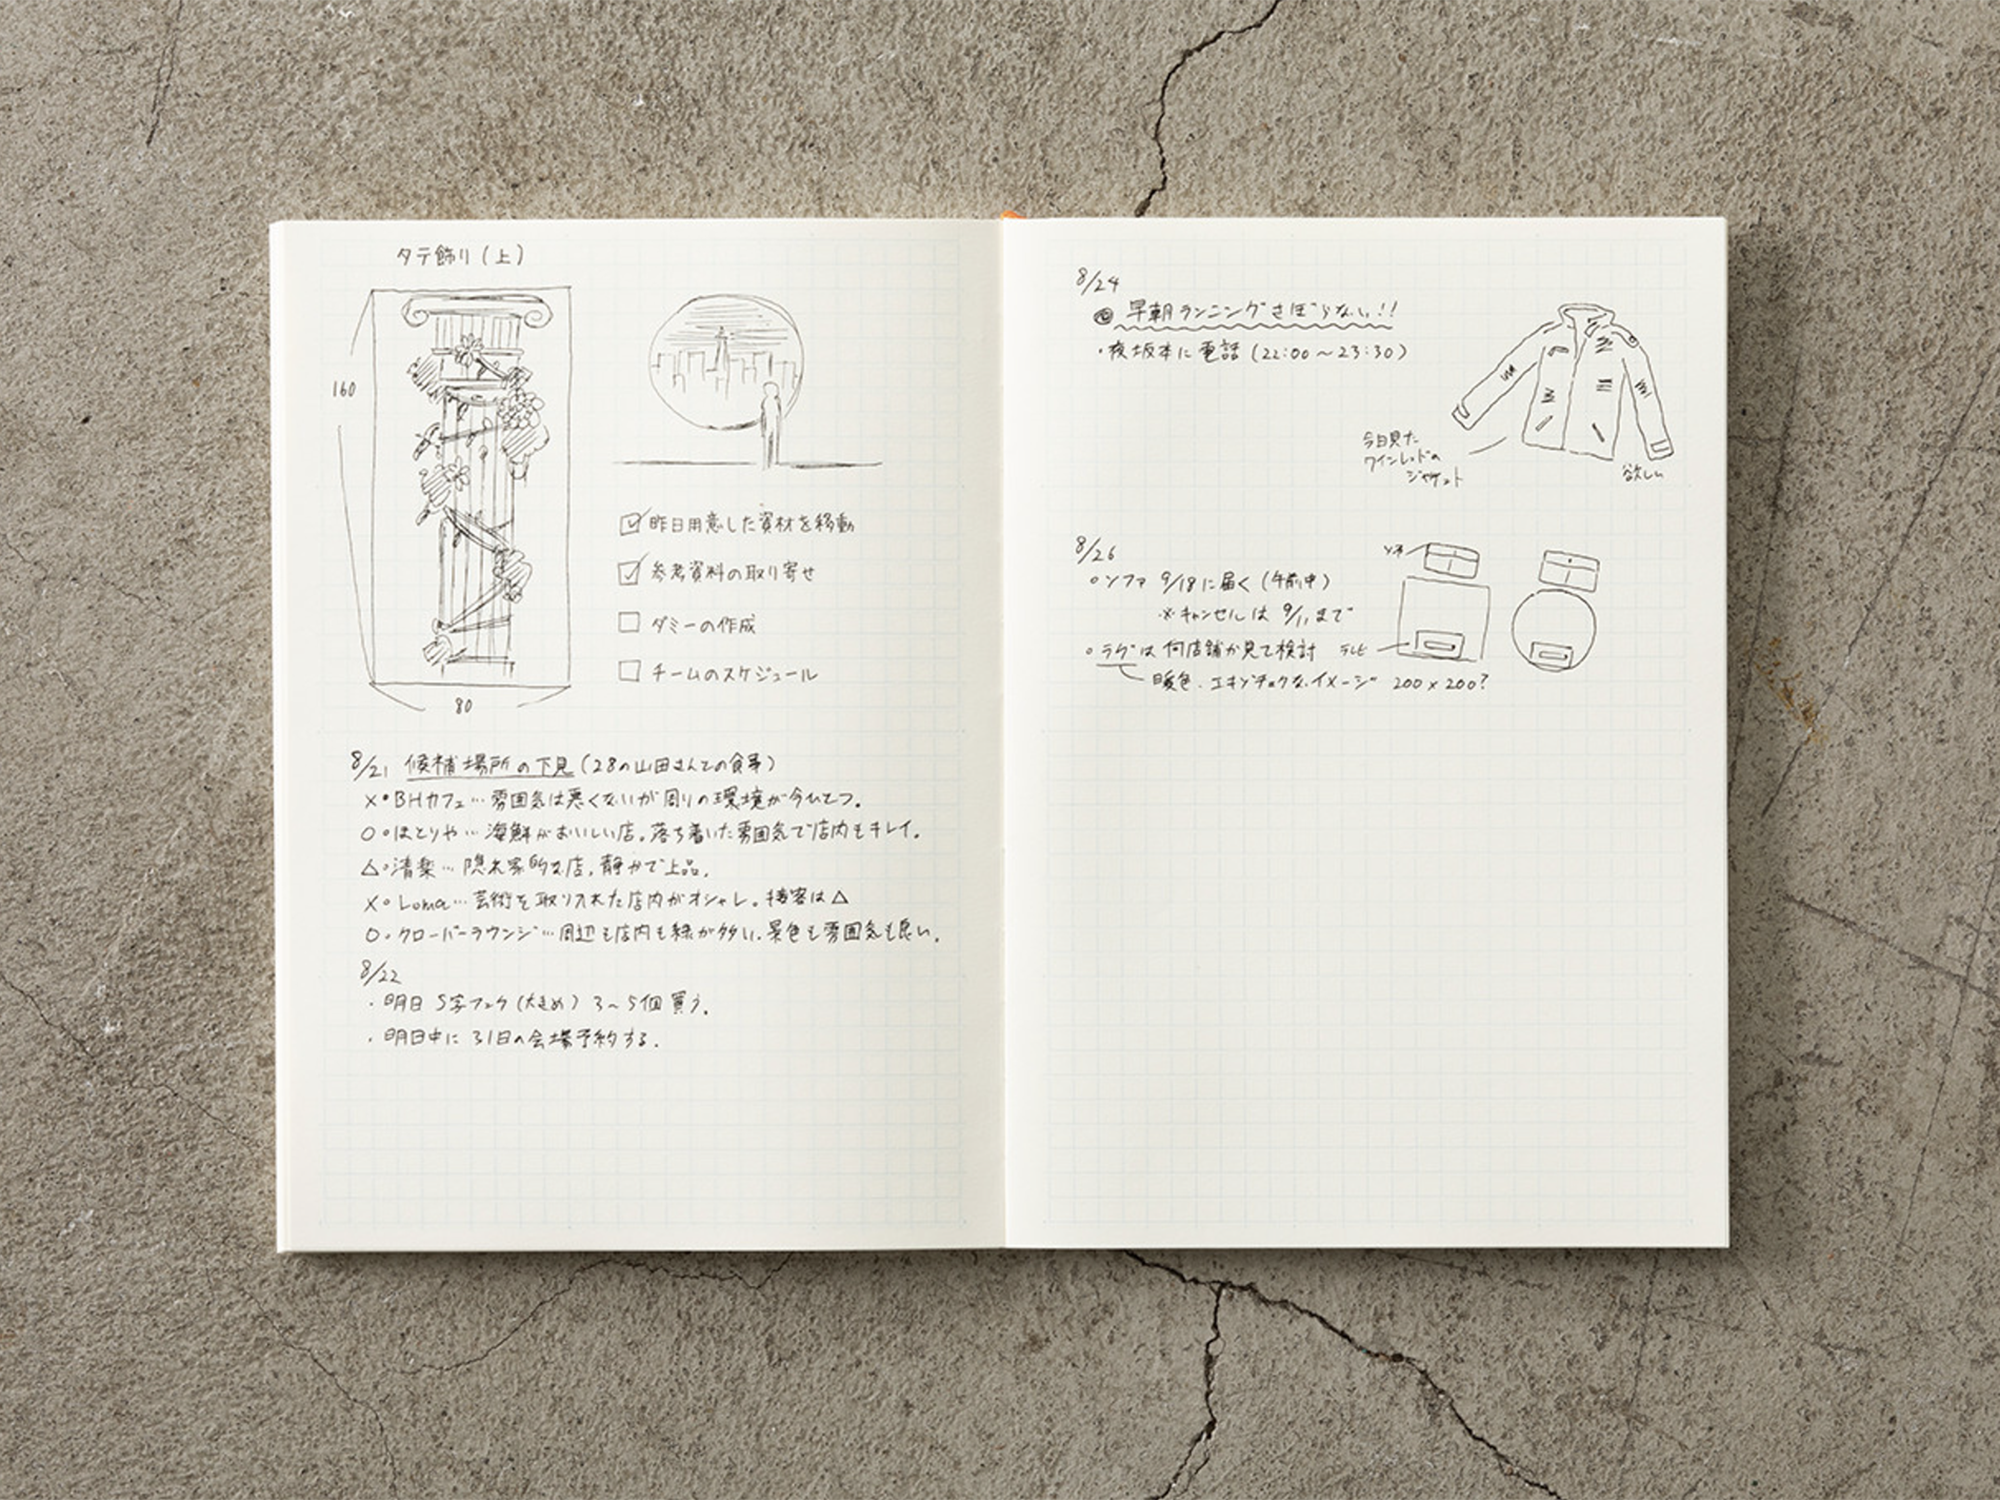 タテ飾り(上)
160
80
☑ 昨日用意した資材を移動
☑ 参考資料の取り寄せ
☐ ダミーの作成
☐ チームのスケジュール
8/21 候補場所の下見(28の山田さんとの食事)
×・BHカフェ…雰囲気は悪くないが周りの環境が今ひとつ。
○・ほとりや…海鮮がおいしい店。落ち着いた雰囲気で店内もキレイ。
△・清楽…隠れ家的な店。静かで上品。
×・Loma…芸術を取り入れた店内がオシャレ。接客は△
○・クローバーラウンジ…周辺も店内も緑が多い。景色も雰囲気も良い。
8/22
・明日 S字フック(大きめ) 3〜5個買う。
・明日中に31日の会場予約する。
8/24
◎ 早朝ランニングさぼらない!!
・夜坂本に電話(22:00〜23:30)
今日見た
ワインレッドの
ジャケット
欲しい
8/26
○ソファ 9/18に届く(午前中)
※キャンセルは 9/11まで
○ラグは何店舗か見て検討
暖色、エキゾチックなイメージ 200×200?
ソファ
テレビ